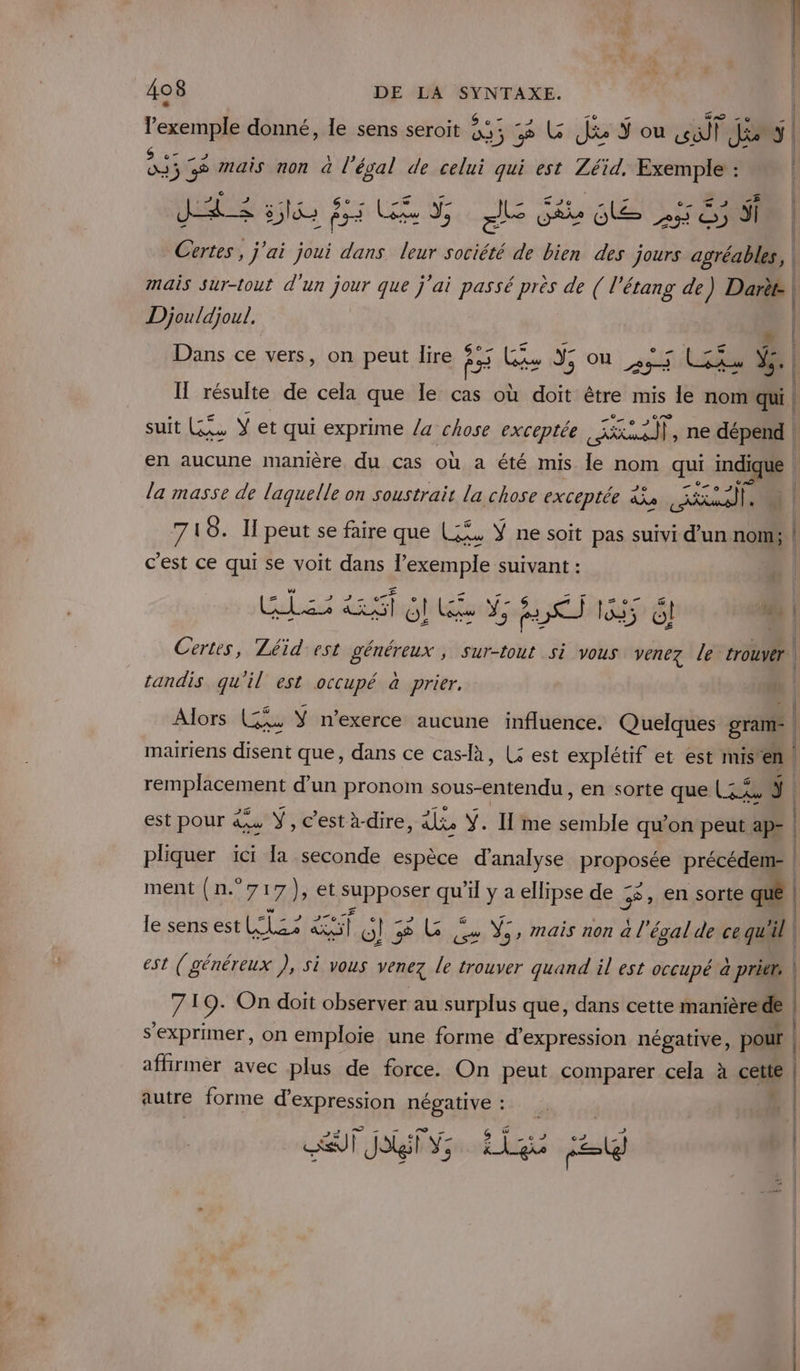 408 DE LA SYNTAXE.
l'exemple donné, le sens seroit لا مثل ما هو زيد ou لا مثل الذي
هو زيد mais non à l'égal de celui qui est Zéïd. Exemple :
ألا رب يوم كان منهن صالح ولا سيما يوم بدارة جلجل
Certes, j'ai joui dans leur société de bien des jours agréables,
mais sur-tout d'un jour que j'ai passé près de ( l'étang de) Darèt-
Djouldjoul.
Dans ce vers, on peut lire ولا سيما يوم ou ولا سيما يوم.
Il résulte de cela que le cas où doit être mis le nom qui
suit لا سيما et qui exprime la chose exceptée المستثنى, ne dépend
en aucune manière du cas où a été mis le nom qui indique
la masse de laquelle on soustrait la chose exceptée المستثنى منه.
718. Il peut se faire que لا سيما ne soit pas suivi d'un nom;
c'est ce qui se voit dans l'exemple suivant :
إن زيدا لكريم ولا سيما إن أتيته مصليا
Certes, Zéïd est généreux, sur-tout si vous venez le trouver
tandis qu'il est occupé à prier.
Alors لا سيما n'exerce aucune influence. Quelques gram-
mairiens disent que, dans ce cas-là, ما est explétif et est mis en
remplacement d'un pronom sous-entendu, en sorte que لا سيما
est pour لا سيه, c'est à-dire, لا مثله. Il me semble qu'on peut ap-
pliquer ici la seconde espèce d'analyse proposée précédem-
ment (n.° 717), et supposer qu'il y a ellipse de هو, en sorte que
le sens est ولا سي ما هو إن أتيته مصليا, mais non à l'égal de ce qu'il
est ( généreux ), si vous venez le trouver quand il est occupé à prier.
719. On doit observer au surplus que, dans cette manière de
s'exprimer, on emploie une forme d'expression négative, pour
affirmer avec plus de force. On peut comparer cela à cette
autre forme d'expression négative :